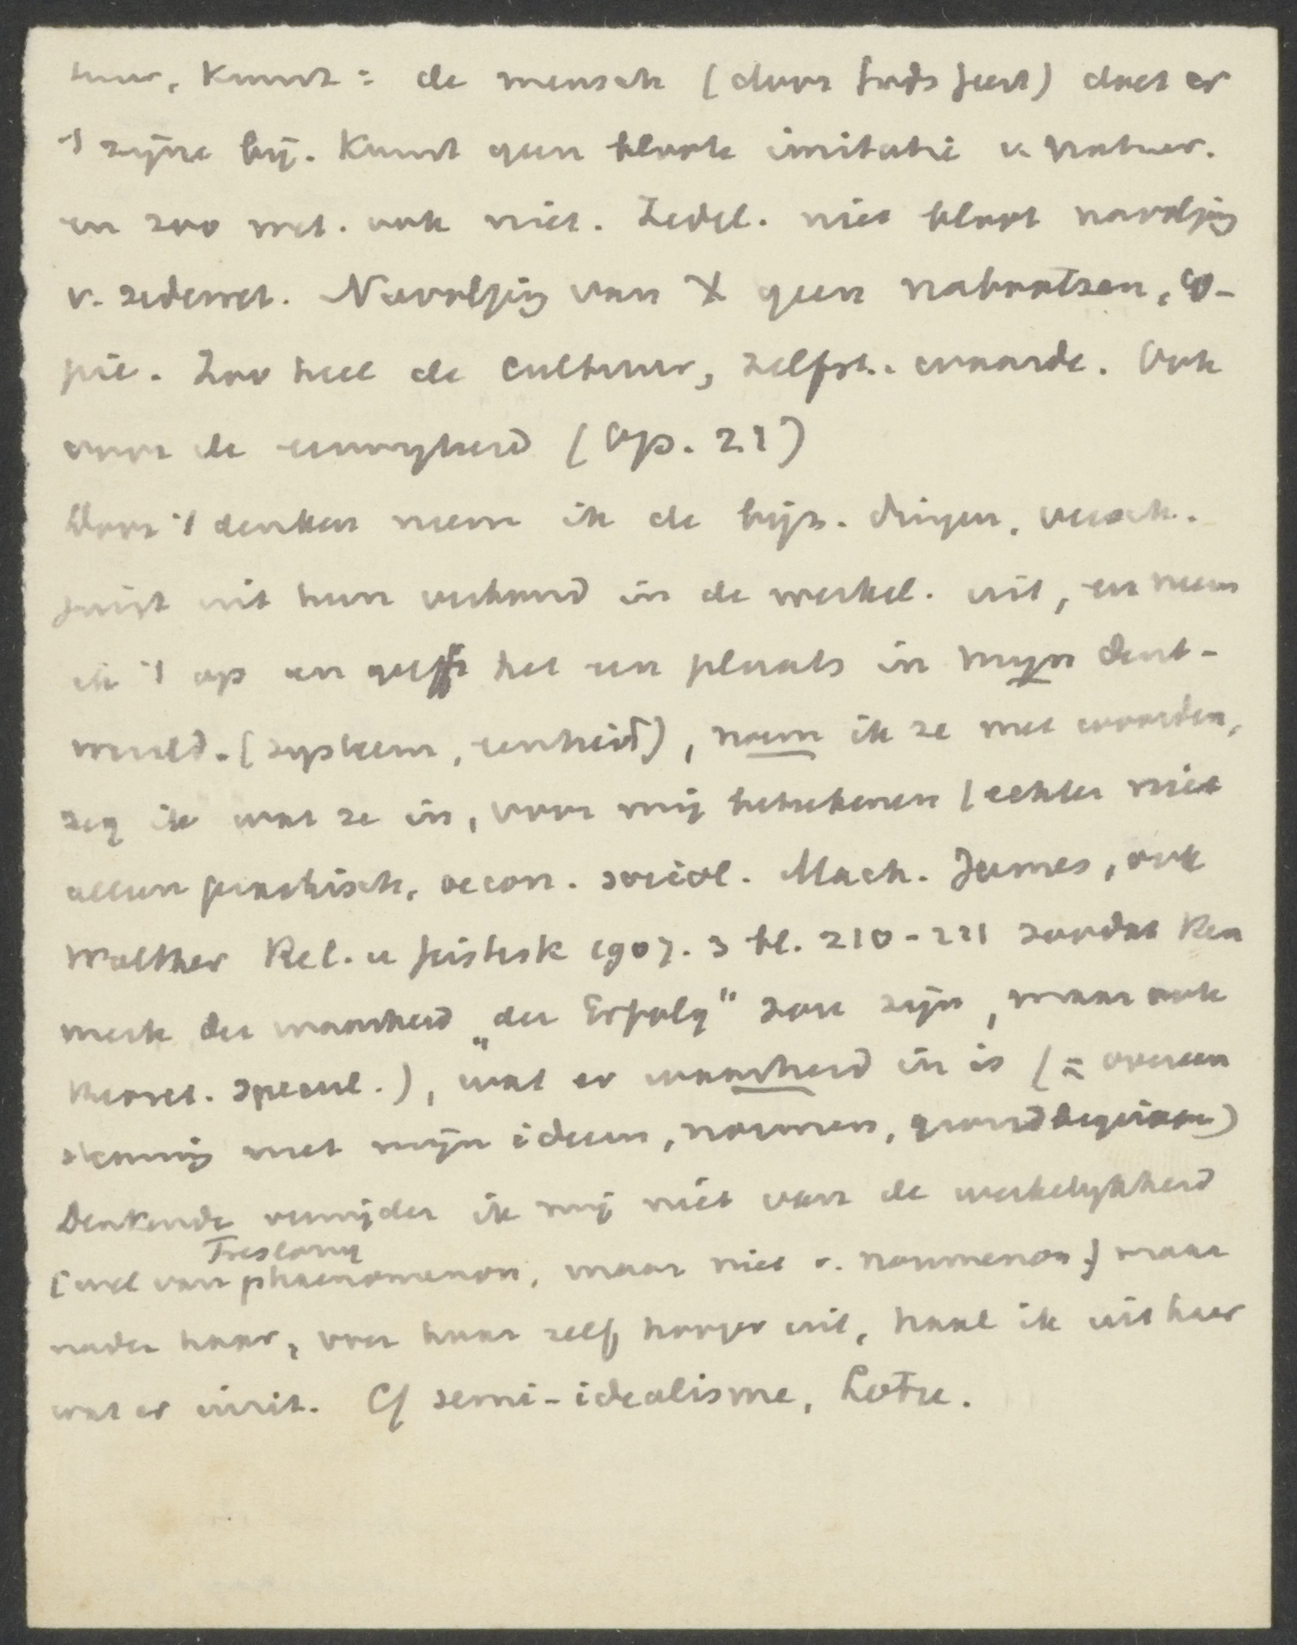 tuur, Kunst: de mensch (door Gods Geest) doet er
't zijne bij. Kunst geen bloote imitatie v. natuur.
en zoo wet. ook niet. Zedel. niet bloot navolging
v. zedewet. Navolging van X geen nabootsen, co-
pie. Zoo heel de cultuur, zelfst. waarde. Ook
voor de eeuwigheid (Op. 21)
Door 't denken neem ik de bijz. dingen, versch.
juist uit hun verband in de werkel. uit, en neem
ik 't op en geeft het een plaats in mijn denk-
wereld. (systeem, eenheid), noem ik ze met woorden,
zeg ik wat ze in, voor mij beteekenen (echter niet
alleen practisch, oecon. sociol. Mach. James, ook
Walther Rel. u Geistesk 1907. 3 bl. 210-221 zoodat Ken
merk der waarheid "der Erfolg" zou zijn, maar ook
theoret. specul.), wat er waarheid in is (= overeen
stemming met mijn ideeen, normen, grondbegrippen)
Denkende verwijder ik mij niet van de werkelijkheid
Treslong
[wel van phaenomenon, maar niet v. noumenon] maar
nader haar, voer haar zelf hooger uit, haal ik uit haar
wat er inzit. Cf semi-idealisme, Lotze.